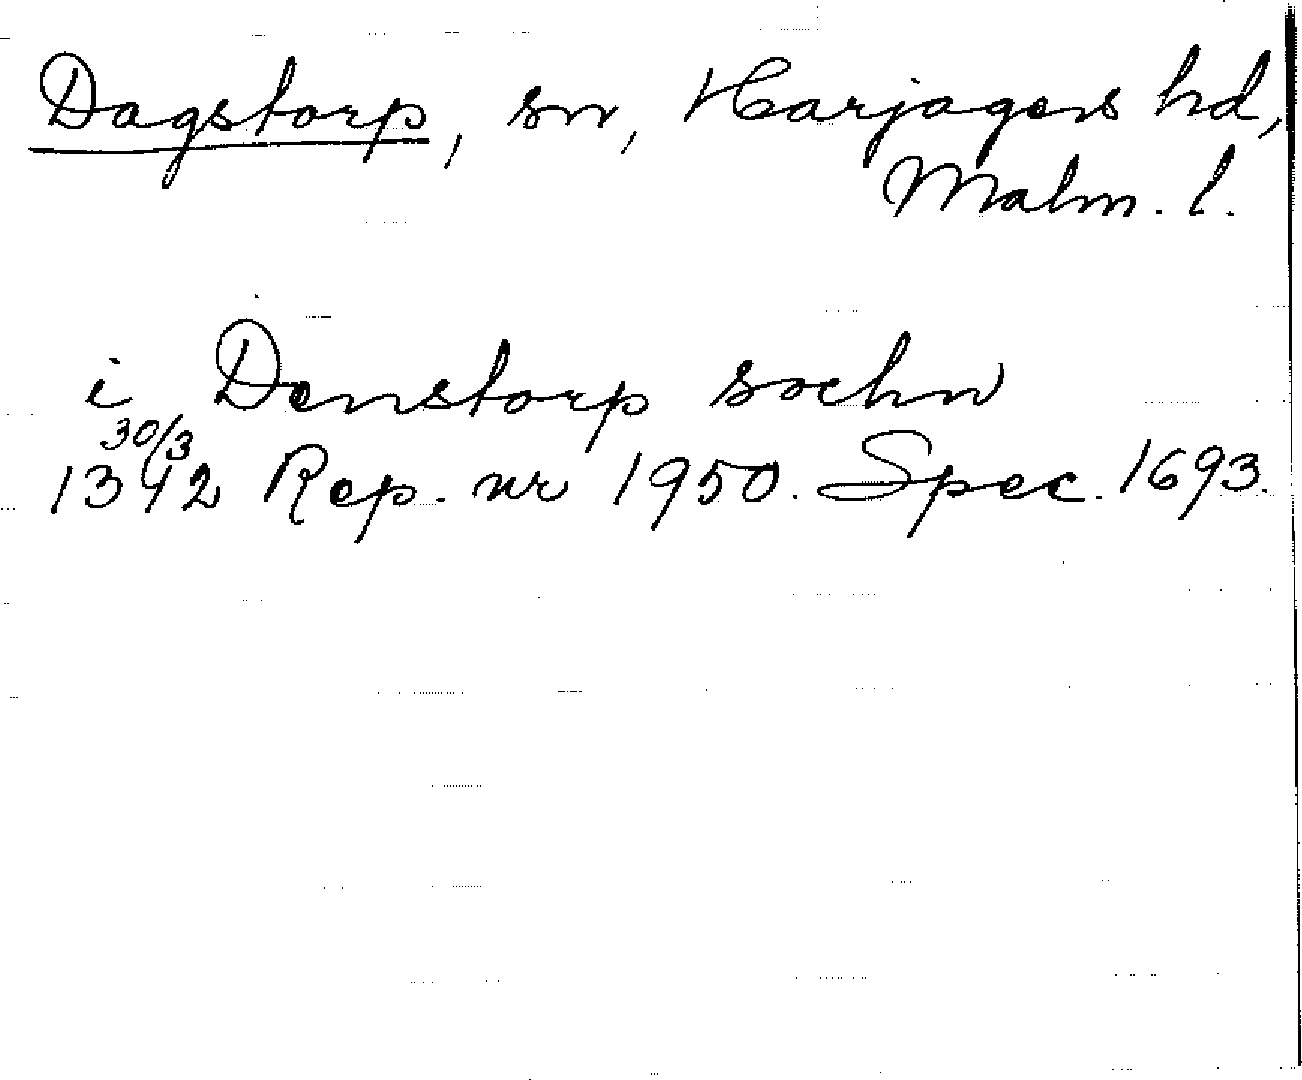 Dagstorp, sn, Harjagers hd,
Malm. l.
i Denstorp sochn
30/3
1342 Rep. nr 1950. Spec. 1693.